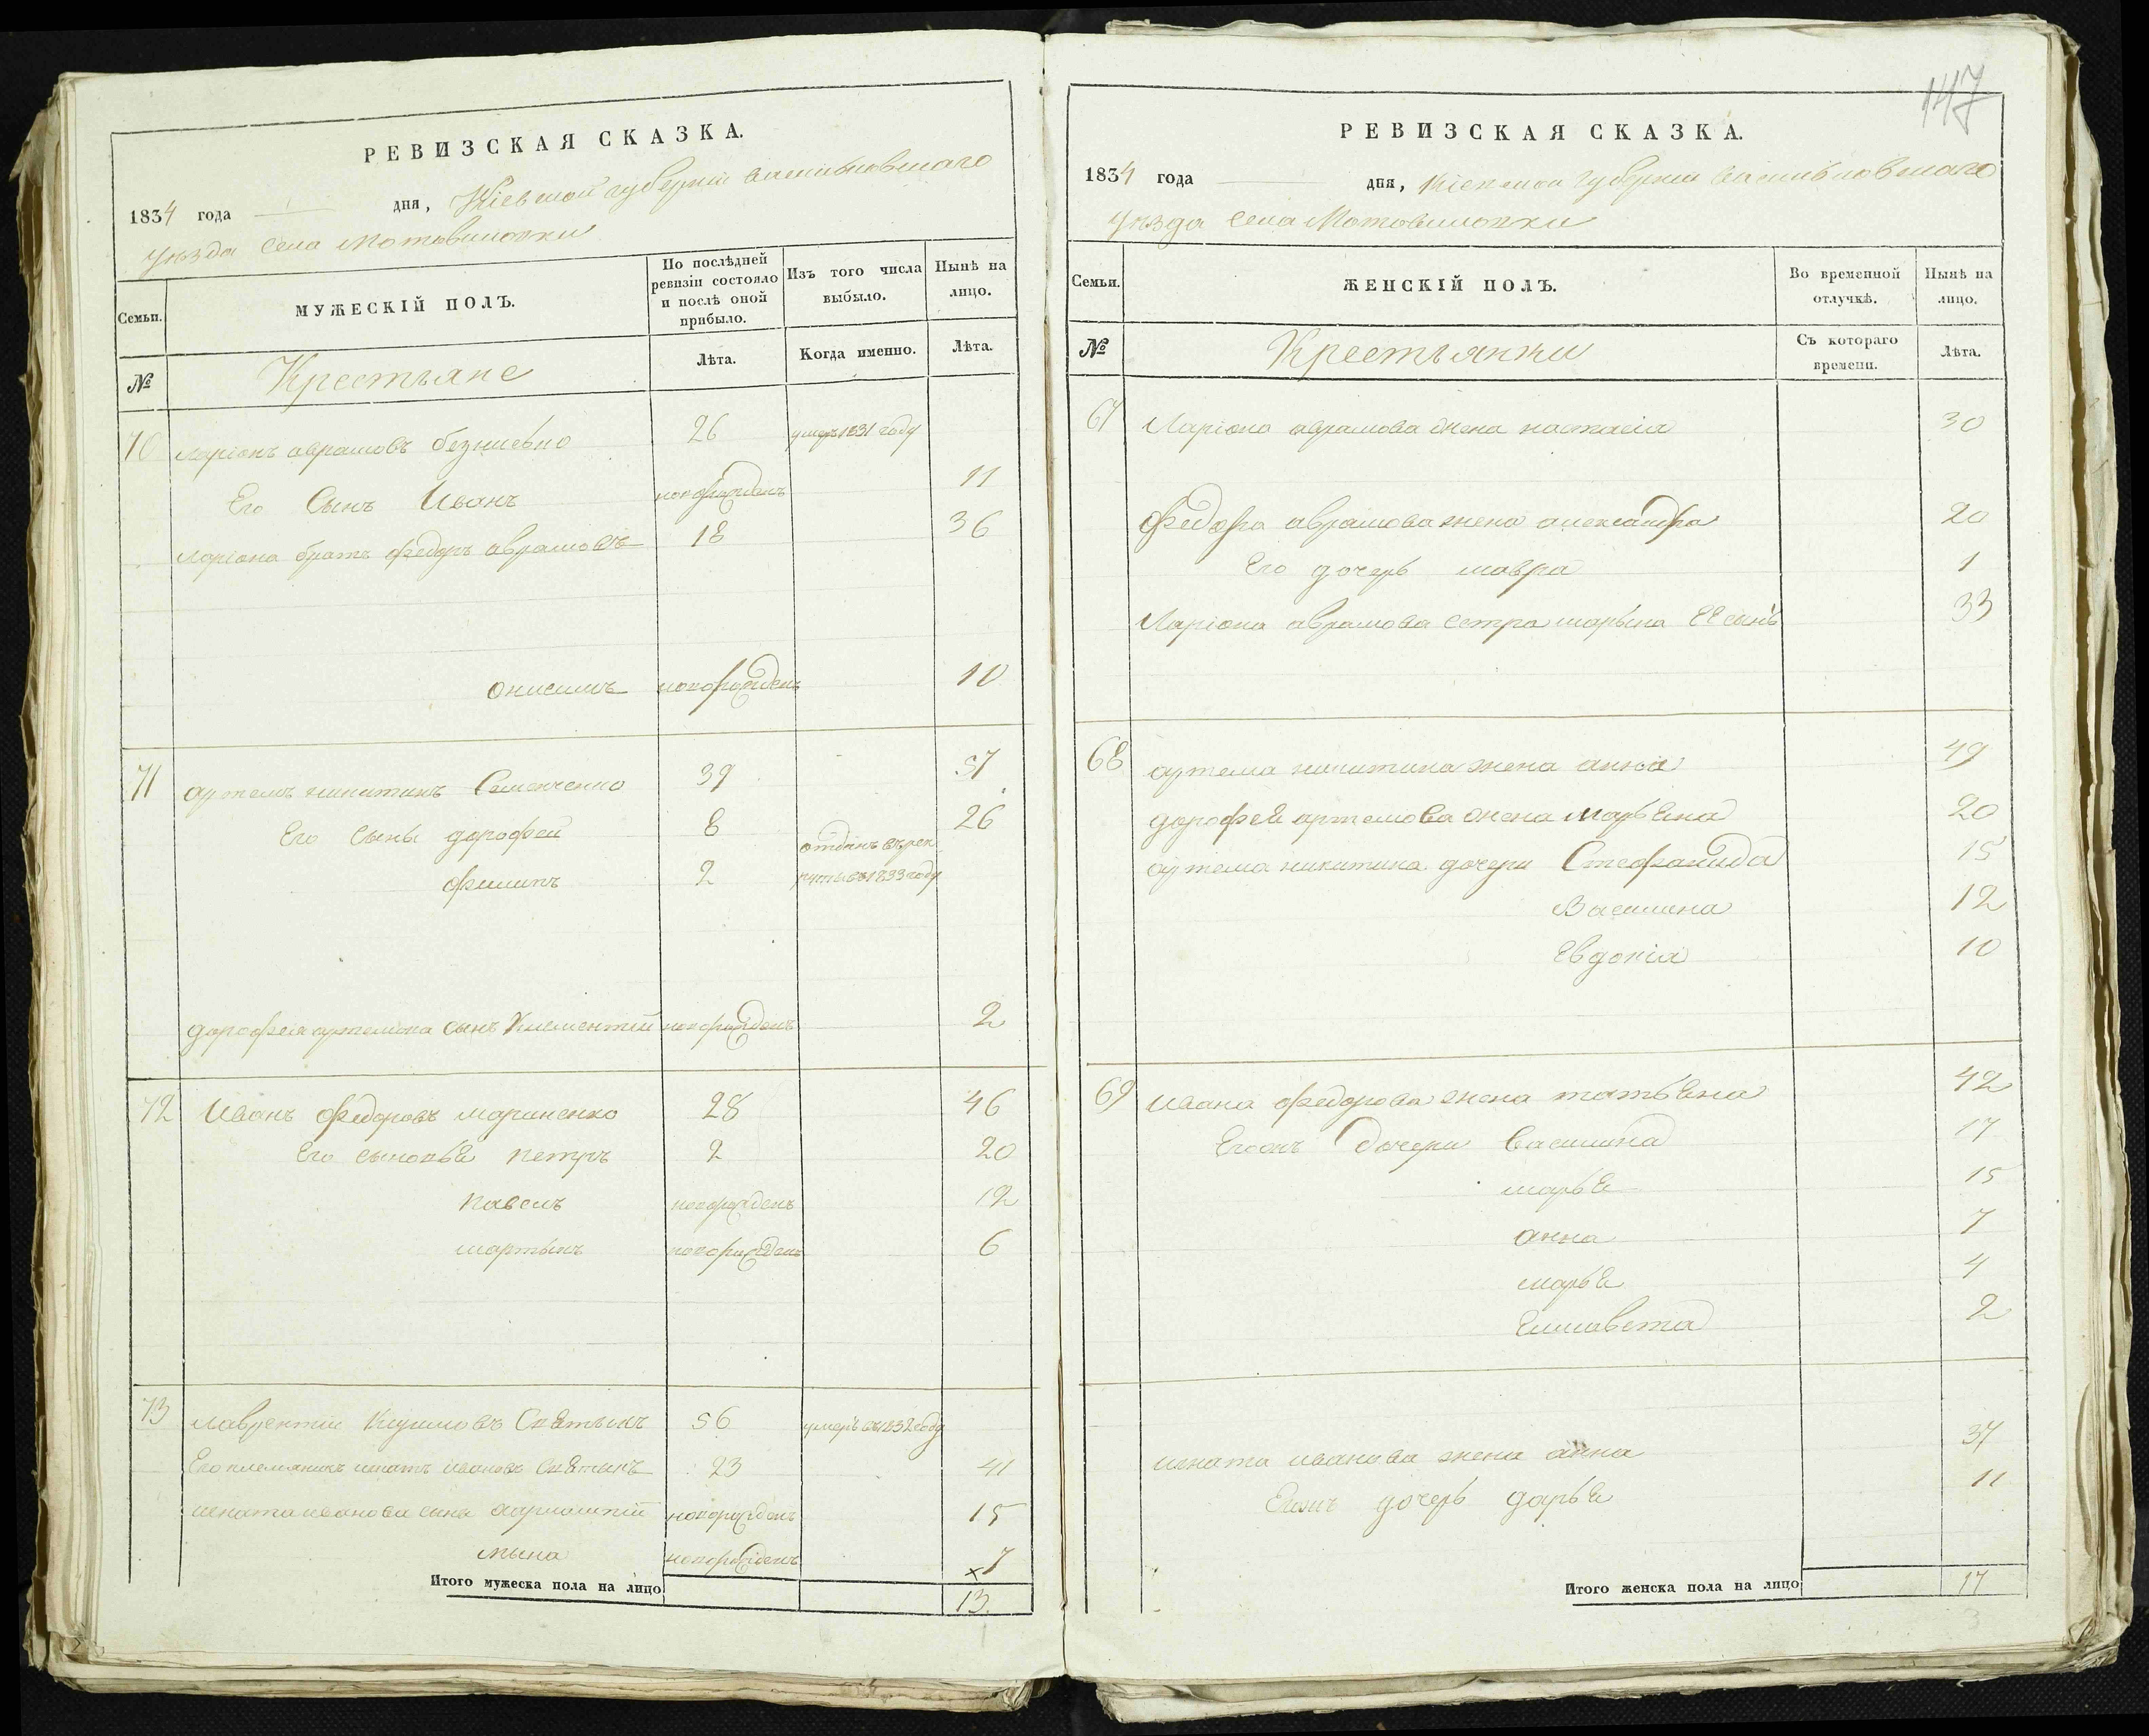 147
РЕВИЗСКАЯ СКАЗКА.
1834 года дня, Кіевской губерніи Васильковскаго
уезда села Мотовиловки
Семьи.
МУЖЕСКІЙ ПОЛЪ.
По послѣдней ревизіи состояло и послѣ оной прибыло.
Изъ того числа выбыло.
Нынѣ на лицо.
№
Крестьяне
Лѣта.
Когда именно.
Лѣта.
70 Ларіонъ аврамовъ 26 умеръ 1831 году
Его Сынъ Иванъ новорожденъ 11
Ларіона братъ федоръ аврамовъ 18 36
онисимъ новорожденъ 10
71 артемъ никитинъ Семенченко 39 57
Его сыны дорофей 8 26
филипъ 2 отданъ въ рек
руты въ 1833 году
дорофея артемова сынъ Климентій новорожденъ 2
72 Иванъ федоровъ мариненко 28 46
Его сыновье петръ 2 20
павелъ новорожденъ 12
мартынъ новорожденъ 6
73 лаврентій 56 умеръ въ 1832 году
Его племяникъ игнатъ ивановъ 23 41
игната иванова сына новорожденъ 15
мына новорожденъ x 7
Итого мужеска пола на лицо 13.
РЕВИЗСКАЯ СКАЗКА.
1834 года дня, Кіевской губерніи Васильковскаго
уезда села Мотовиловки
Семьи.
ЖЕНСКІЙ ПОЛЪ.
Во временной отлучкѣ.
Нынѣ на лицо.
№
Крестьянки
Съ котораго времени.
Лѣта.
67 Ларіона аврамова жена настасія 30
федора аврамова жена александра 20
Его дочерь мавра 1
Ларіона аврамова сетра марьина ЕЕ сынъ 33
68 артема никитина жена анна 49
дорофея артемова жена марьена 20
артема никитина дочери Стефанида 15
Василина 12
Евдокія 10
69 ивана федорова жена татьена 42
Егожъ дочери василина 17
марье 15
анна 7
марье 4
Елисавета 2
игната иванова жена анна 37
Егожъ дочерь дарье 11
Итого женска пола на лицо 17
3